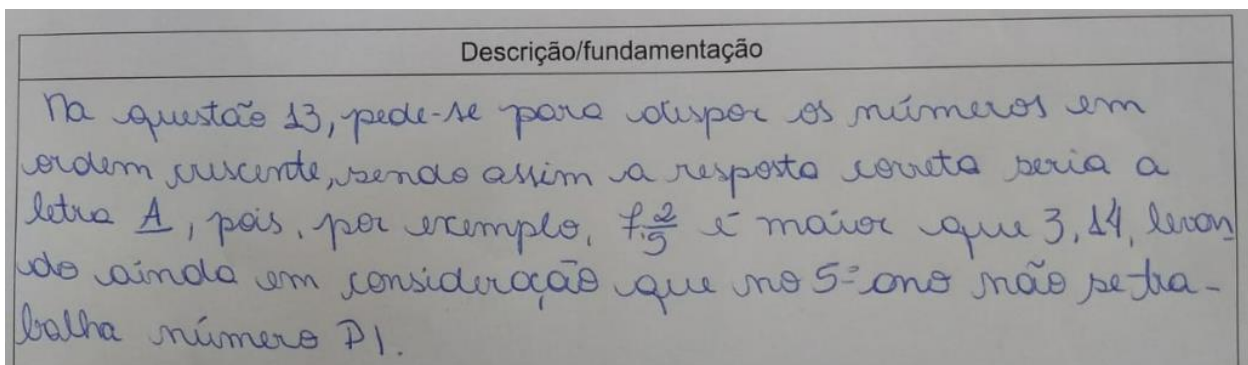 Descrição/fundamentação
Na questão 13, pede-se para dispor os números em
ordem crescente, sendo assim a resposta correta seria a
letra A, pois, por exemplo, 7.2/5 é maior que 3,14, levan
do ainda em consideração que no 5º ano não se tra-
balha número PI.